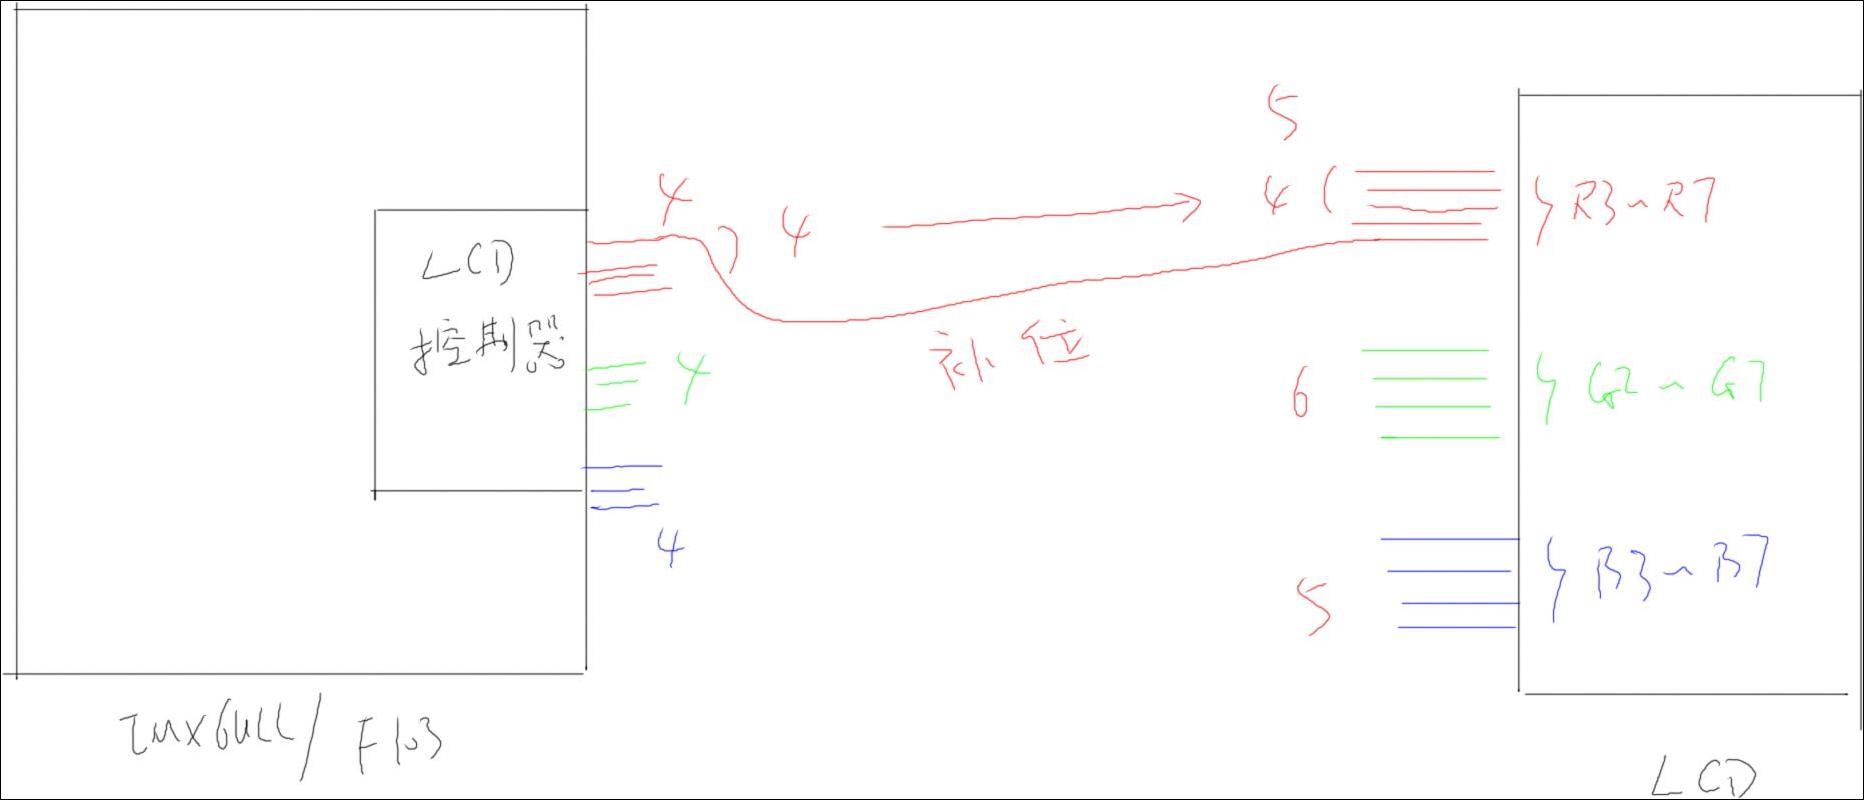 LCD
控制器
4
4
4
4
补位
5
4
6
5
R3~R7
G2~G7
B3~B7
IMX6ULL/F103
LCD